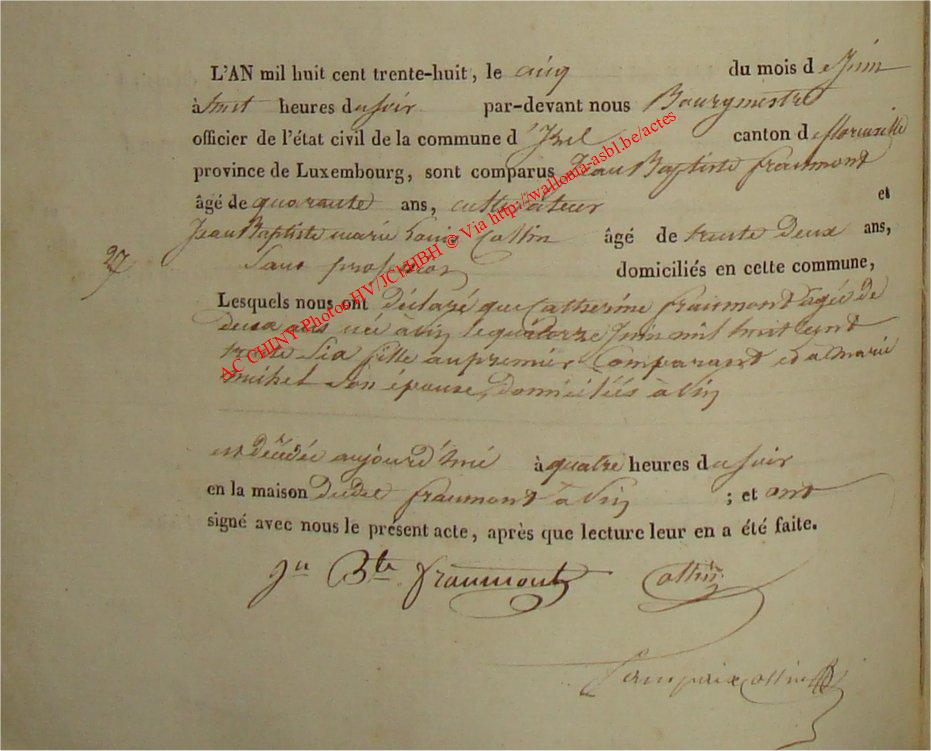 L'AN mil huit cent trente-huit, le cinq du mois de Juin
à huit heures du soir par-devant nous Bourgmestre
officier de l'état civil de la commune d'Izel canton de florenville
province de Luxembourg, sont comparus Jean Baptiste fraumont
âgé de quarante ans, cultivateur et
Jean Baptiste marie Louis Collin âgé de trente deux ans,
27
Sans profession domiciliés en cette commune,
Lesquels nous ont déclaré que Catherine fraumont âgée de
deux ans née a Pin le quatorze Juin mil huit cent
trente six fille au premier Comparant et a marie
michel son épouse, domiciliés à Pin
est décédée aujourd'hui à quatre heures du soir
en la maison dudit fraumont à Pin ; et ont
signé avec nous le présent acte, après que lecture leur en a été faite.
Jn Bte fraumont Collin
AC CHINY Photos HV/JCH/HBH © Via http://walloma-asbl.be/actes